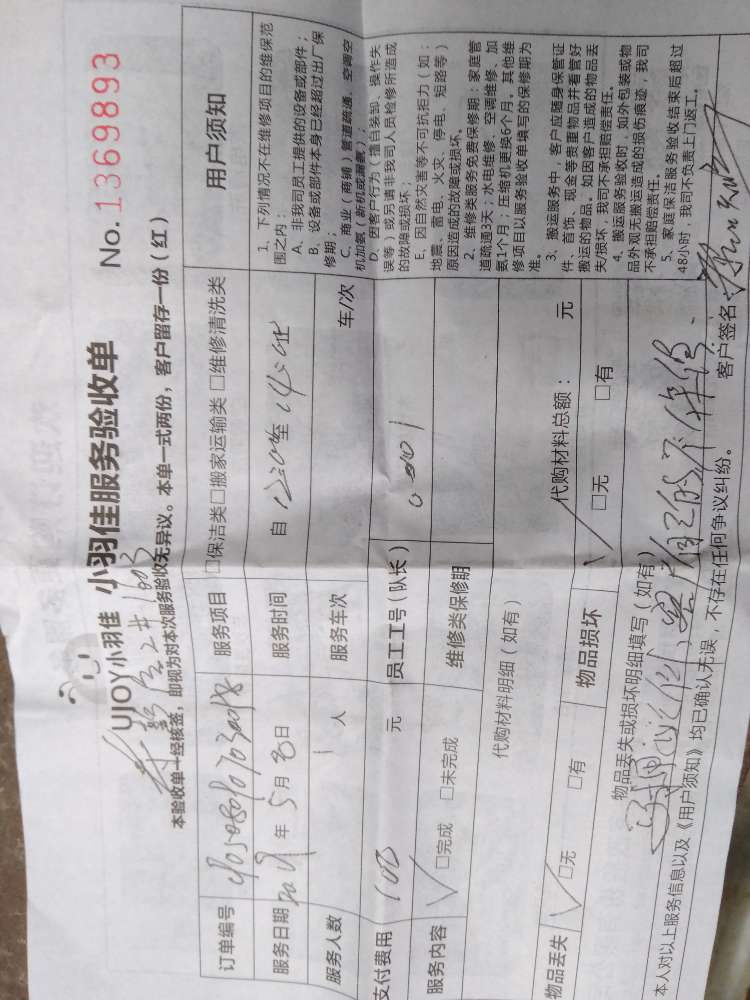 UJOY小羽佳 小羽佳服务验收单 No. 1369893
本验收单一经核签，即视为对本次服务验收无异议。本单一式两份，客户留存一份（红）
订单编号
服务项目 □保洁类□搬家运输类 □维修清洗类
服务日期 年 5月 日
服务时间 自 至
服务人数 1 人
服务车次 车/次
支付费用 100 元
员工工号(队长)
服务内容 □完成 □未完成
维修类保修期
代购材料明细（如有） 代购材料总额： 元
物品丢失 □无 □有
物品损坏 □无 □有
物品丢失或损坏明细填写（如有）
用户须知
1、下列情况不在维修项目的维保范
围之内：
A、非我司员工提供的设备或部件；
B、设备或部件本身已经超过出厂保
修期；
C、商业（商铺）管道疏通、空调空
机加氨（新机或漏氨）；
D、因客户行为（擅自装卸、操作失
误等）或另请非我司人员检修所造成
的故障或损坏；
E、因自然灾害等不可抗拒力（如：
地震、蓄电、火灾、停电、短路等）
原因造成的故障或损坏。
2、维修类服务免费保修期：家庭管
道疏通3天；水电维修、空调维修、加
氨1个月；压缩机更换6个月。其他维
修项目以服务验收单填写的保修期为
准。
3、搬运服务中，客户应随身保管证
件、首饰、现金等贵重物品并看管好
搬运的物品。如因客户造成的物品丢
失/损坏，我司不承担赔偿责任。
4、搬运服务验收时，如外包装或物
品外观无搬运造成的损伤痕迹，我司
不承担赔偿责任。
5、家庭保洁服务验收结束后超过
48小时，我司不负责上门返工。
本人对以上服务信息以及《用户须知》均已确认无误，不存在任何争议纠纷。 客户签名